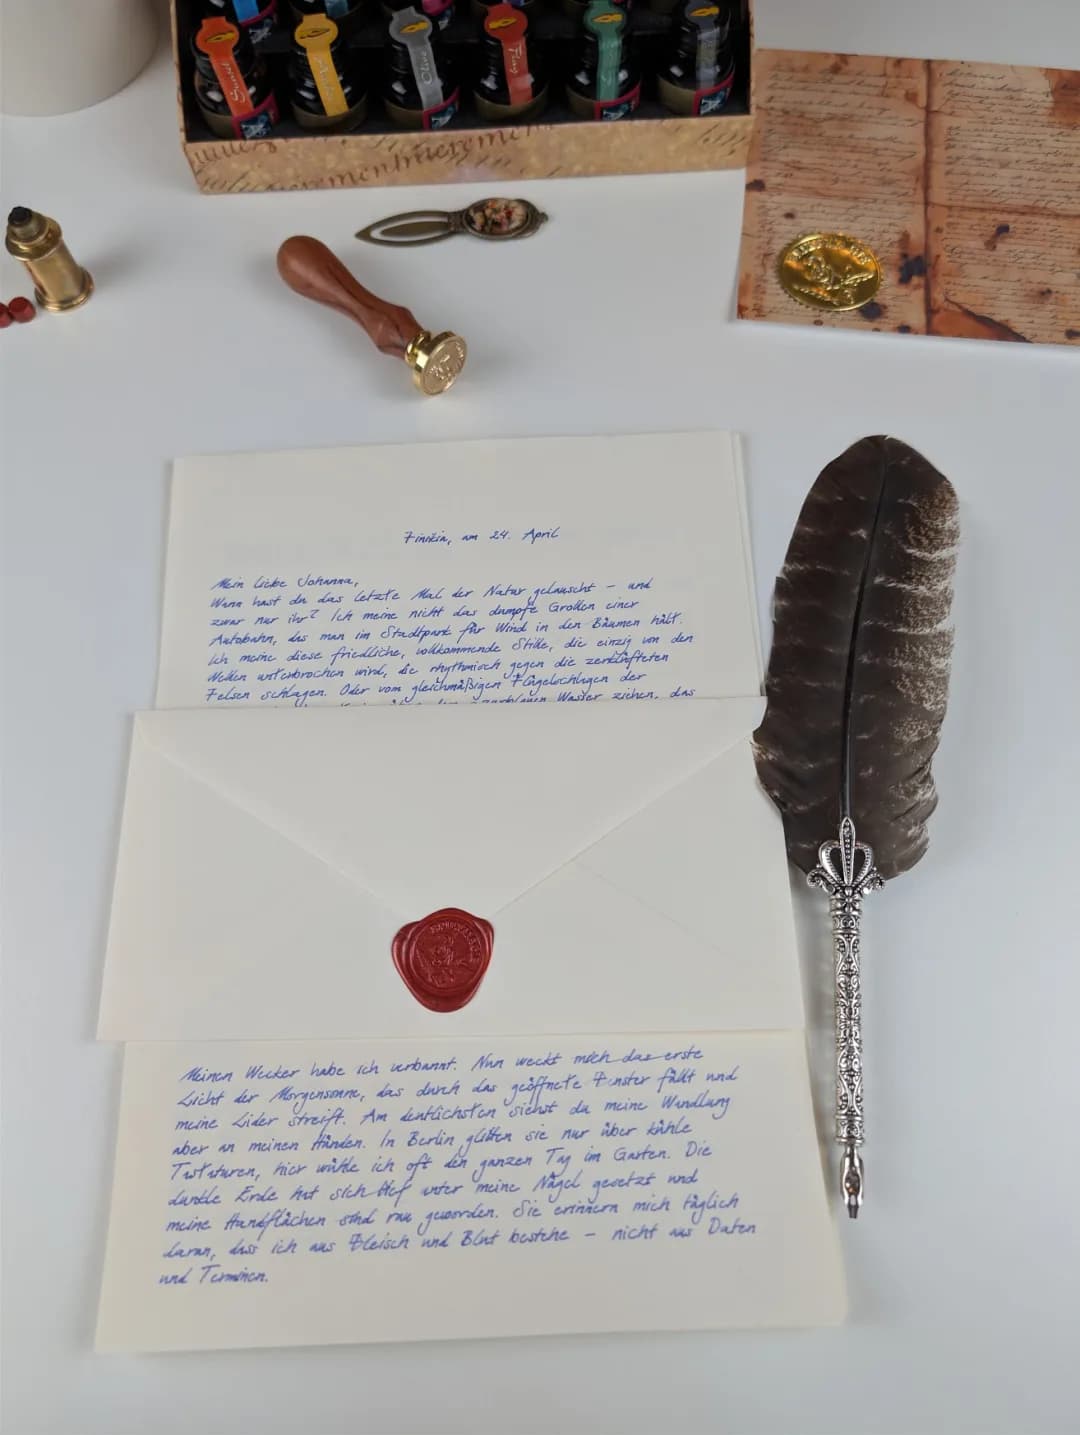 Sunset
Olive
Finizia, am 24. April
Mein Liebe Johanna,
Wann hast du das letzte Mal der Natur gelauscht – und
zwar nur ihr? Ich meine nicht das dumpfe Grollen einer
Autobahn, das man im Stadtpark für Wind in den Bäumen hält.
Ich meine diese friedliche, vollkommende Stille, die einzig von den
Wellen unterbrochen wird, die rhythmisch gegen die zerklüfteten
Felsen schlagen. Oder vom gleichmäßigen Flügelschlagen der
Wasser ziehen, das
Meinen Wecker habe ich verbannt. Nun weckt mich das erste
Licht der Morgensonne, das durch das geöffnete Fenster fällt und
meine Lider streift. Am deutlichsten siehst du meine Wandlung
aber an meinen Händen. In Berlin glitten sie nur über kühle
Tastaturen, hier wühle ich oft den ganzen Tag im Garten. Die
dunkle Erde hat sich tief unter meine Nägel gesetzt und
meine Handflächen sind rau geworden. Sie erinnern mich täglich
daran, dass ich aus Fleisch und Blut bestehe – nicht aus Daten
und Terminen.